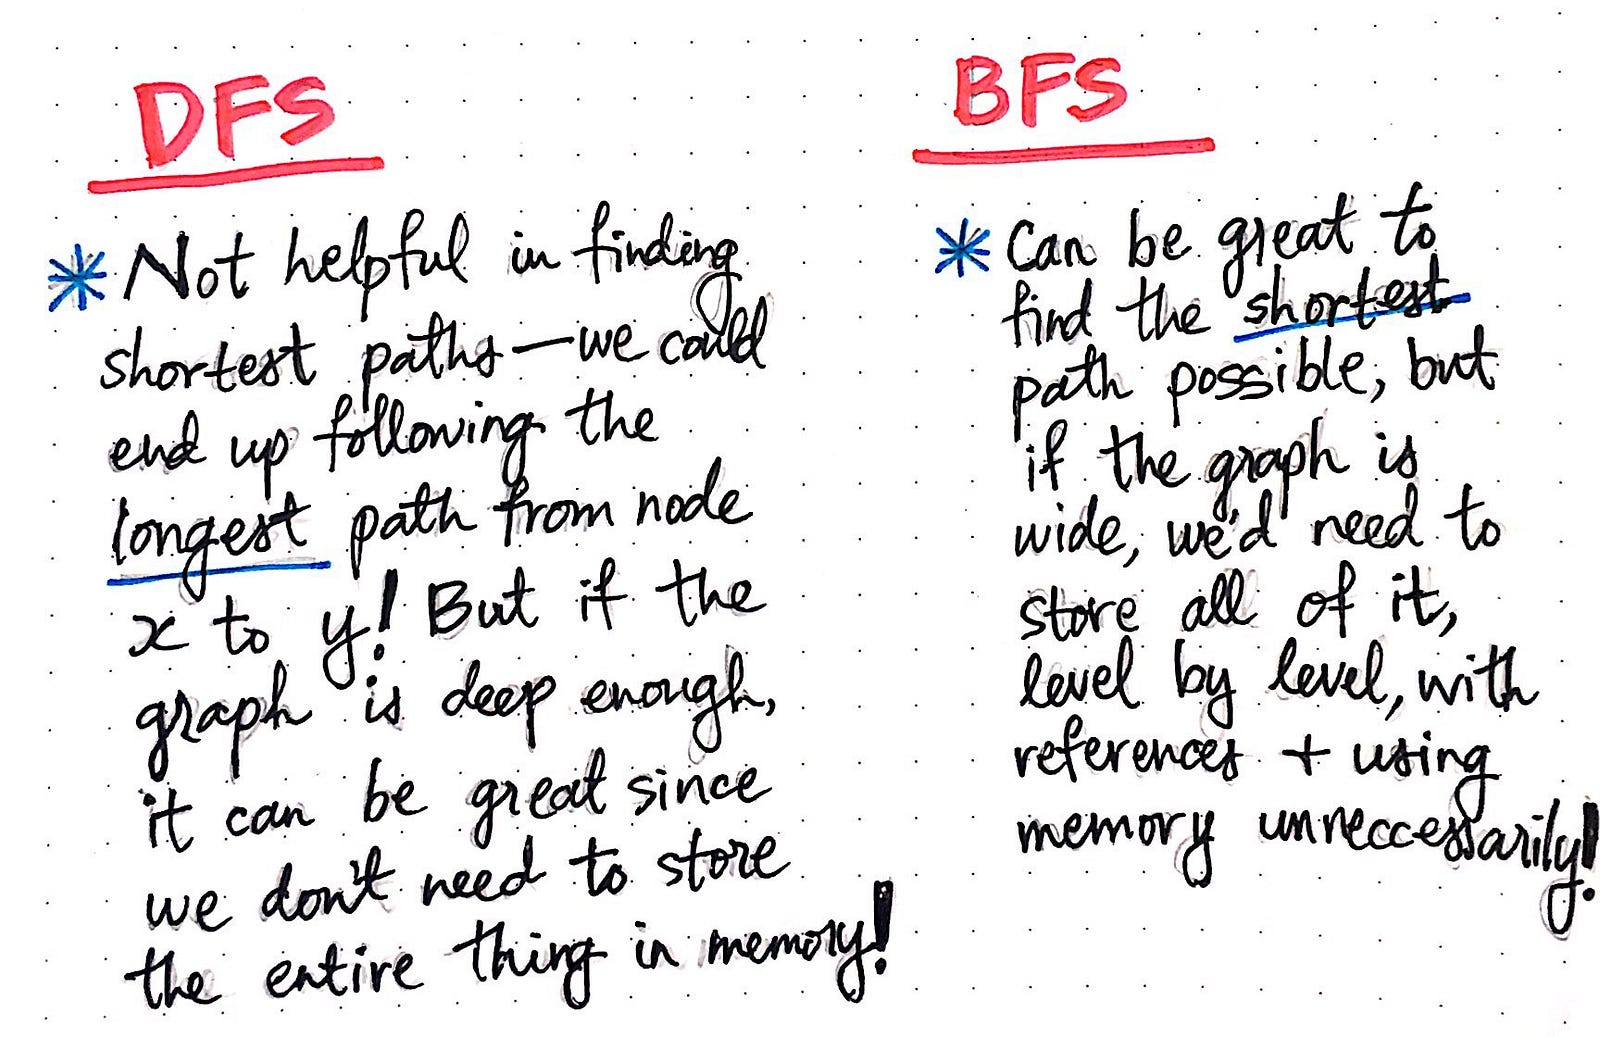 DFS
* Not helpful in finding
shortest paths—we could
end up following the
longest path from node
x to y! But if the
graph is deep enough,
it can be great since
we don't need to store
the entire thing in memory!
BFS
* Can be great to
find the shortest
path possible, but
if the graph is
wide, we'd need to
store all of it,
level by level, with
references + using
memory unneccessarily!